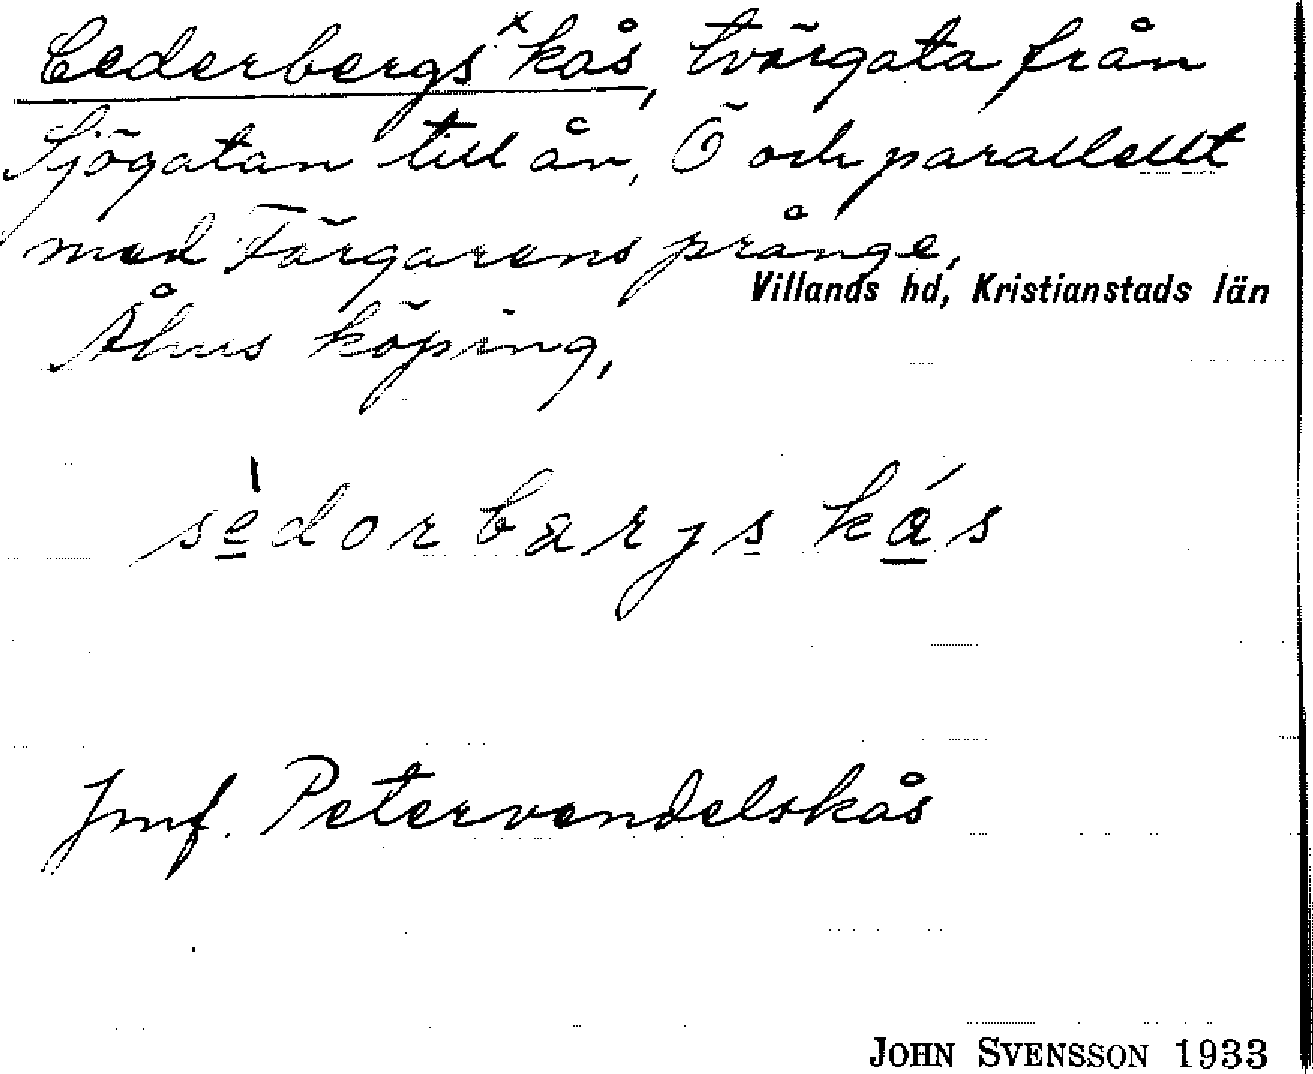 Cederbergs ˣ kås, tvärgata från
Sjögatan till ån, Ö och parallellt
med Färgarens prånge,
Villands hd, Kristianstads län
Åhus köping,
sèdorbarjs kás
Jmf. Petervendelskås
JOHN SVENSSON 1933